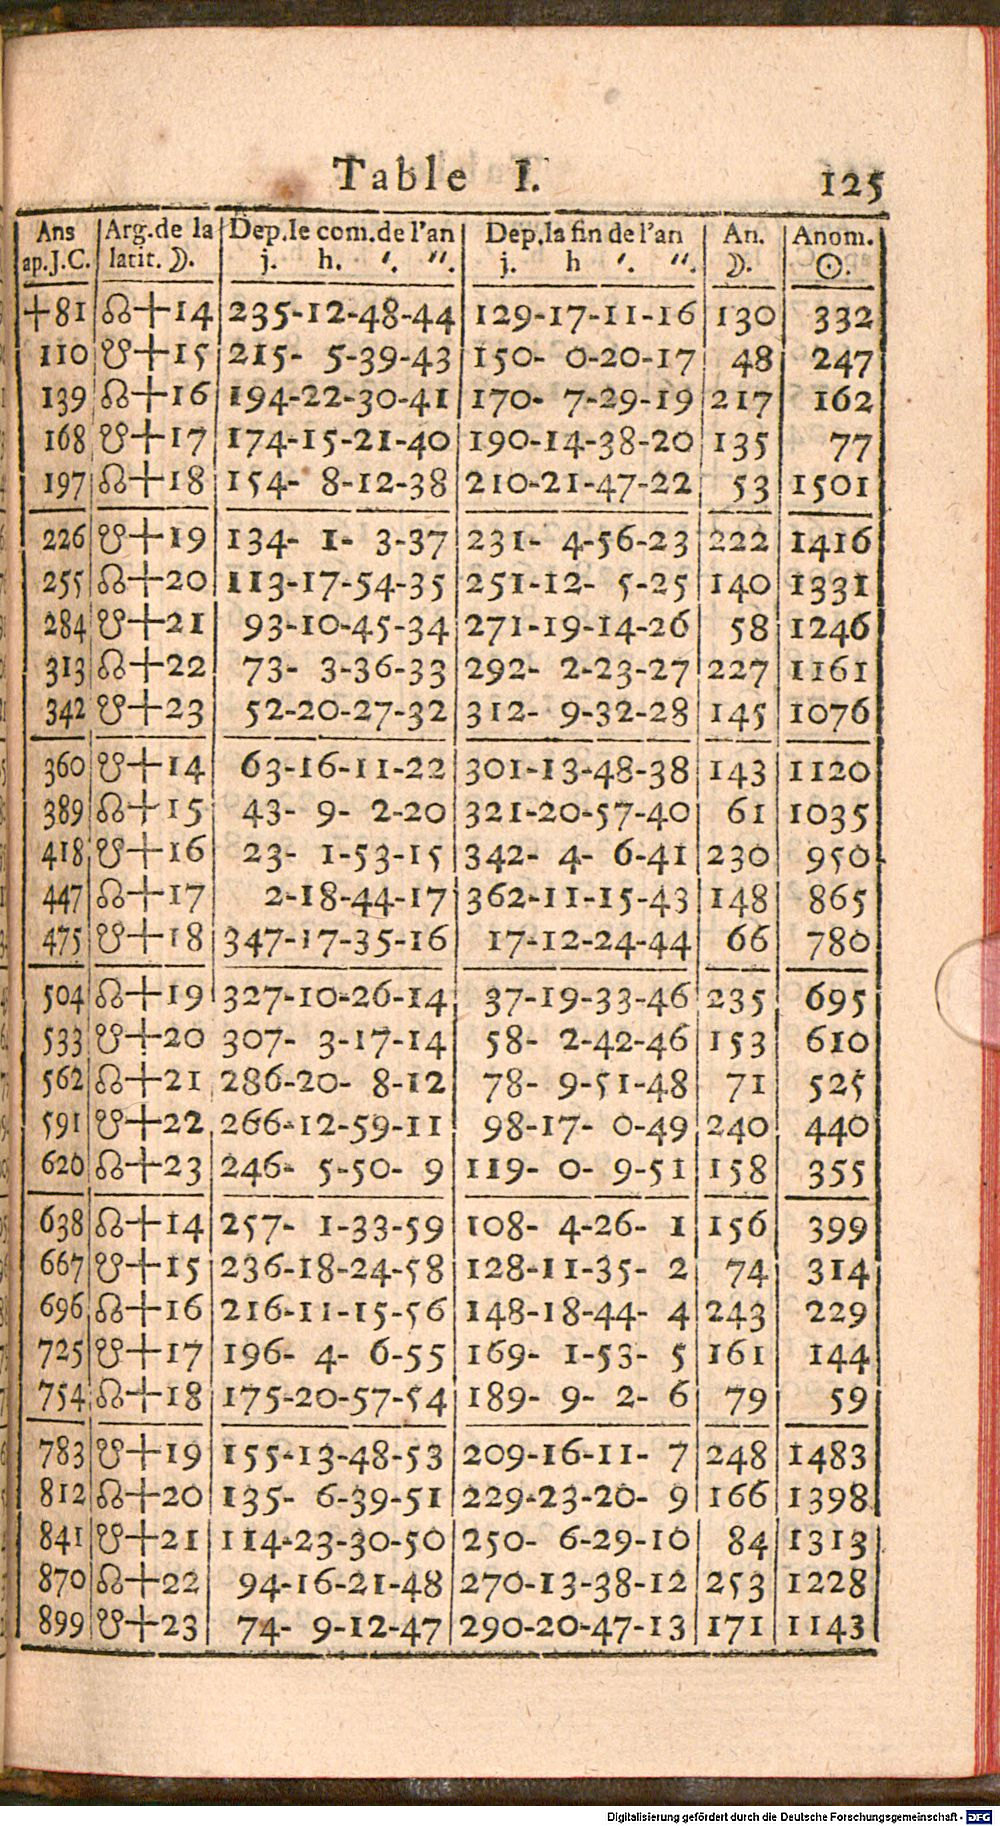 Table I. 125
Ans Arg.de la Dep.le com.de l'an Dep.la fin de l'an An. Anom.
ap.J.C. latit. ☽. j. h. ′. ″. j. h ′. ″. ☽. ☉.
+81 ☊+14 235-12-48-44 129-17-11-16 130 332
110 ☋+15 215- 5-39-43 150- 0-20-17 48 247
139 ☊+16 194-22-30-41 170- 7-29-19 217 162
168 ☋+17 174-15-21-40 190-14-38-20 135 77
197 ☊+18 154- 8-12-38 210-21-47-22 53 1501
226 ☋+19 134- 1- 3-37 231- 4-56-23 222 1416
255 ☊+20 113-17-54-35 251-12- 5-25 140 1331
284 ☋+21 93-10-45-34 271-19-14-26 58 1246
313 ☊+22 73- 3-36-33 292- 2-23-27 227 1161
342 ☋+23 52-20-27-32 312- 9-32-28 145 1076
360 ☋+14 63-16-11-22 301-13-48-38 143 1120
389 ☊+15 43- 9- 2-20 321-20-57-40 61 1035
418 ☋+16 23- 1-53-15 342- 4- 6-41 230 950
447 ☊+17 2-18-44-17 362-11-15-43 148 865
475 ☋+18 347-17-35-16 17-12-24-44 66 780
504 ☊+19 327-10-26-14 37-19-33-46 235 695
533 ☋+20 307- 3-17-14 58- 2-42-46 153 610
562 ☊+21 286-20- 8-12 78- 9-51-48 71 525
591 ☋+22 266-12-59-11 98-17- 0-49 240 440
620 ☊+23 246- 5-50- 9 119- 0- 9-51 158 355
638 ☊+14 257- 1-33-59 108- 4-26- 1 156 399
667 ☋+15 236-18-24-58 128-11-35- 2 74 314
696 ☊+16 216-11-15-56 148-18-44- 4 243 229
725 ☋+17 196- 4- 6-55 169- 1-53- 5 161 144
754 ☊+18 175-20-57-54 189- 9- 2- 6 79 59
783 ☋+19 155-13-48-53 209-16-11- 7 248 1483
812 ☊+20 135- 6-39-51 229-23-20- 9 166 1398
841 ☋+21 114-23-30-50 250- 6-29-10 84 1313
870 ☊+22 94-16-21-48 270-13-38-12 253 1228
899 ☋+23 74- 9-12-47 290-20-47-13 171 1143
Digitalisierung gefördert durch die Deutsche Forschungsgemeinschaft - DFG